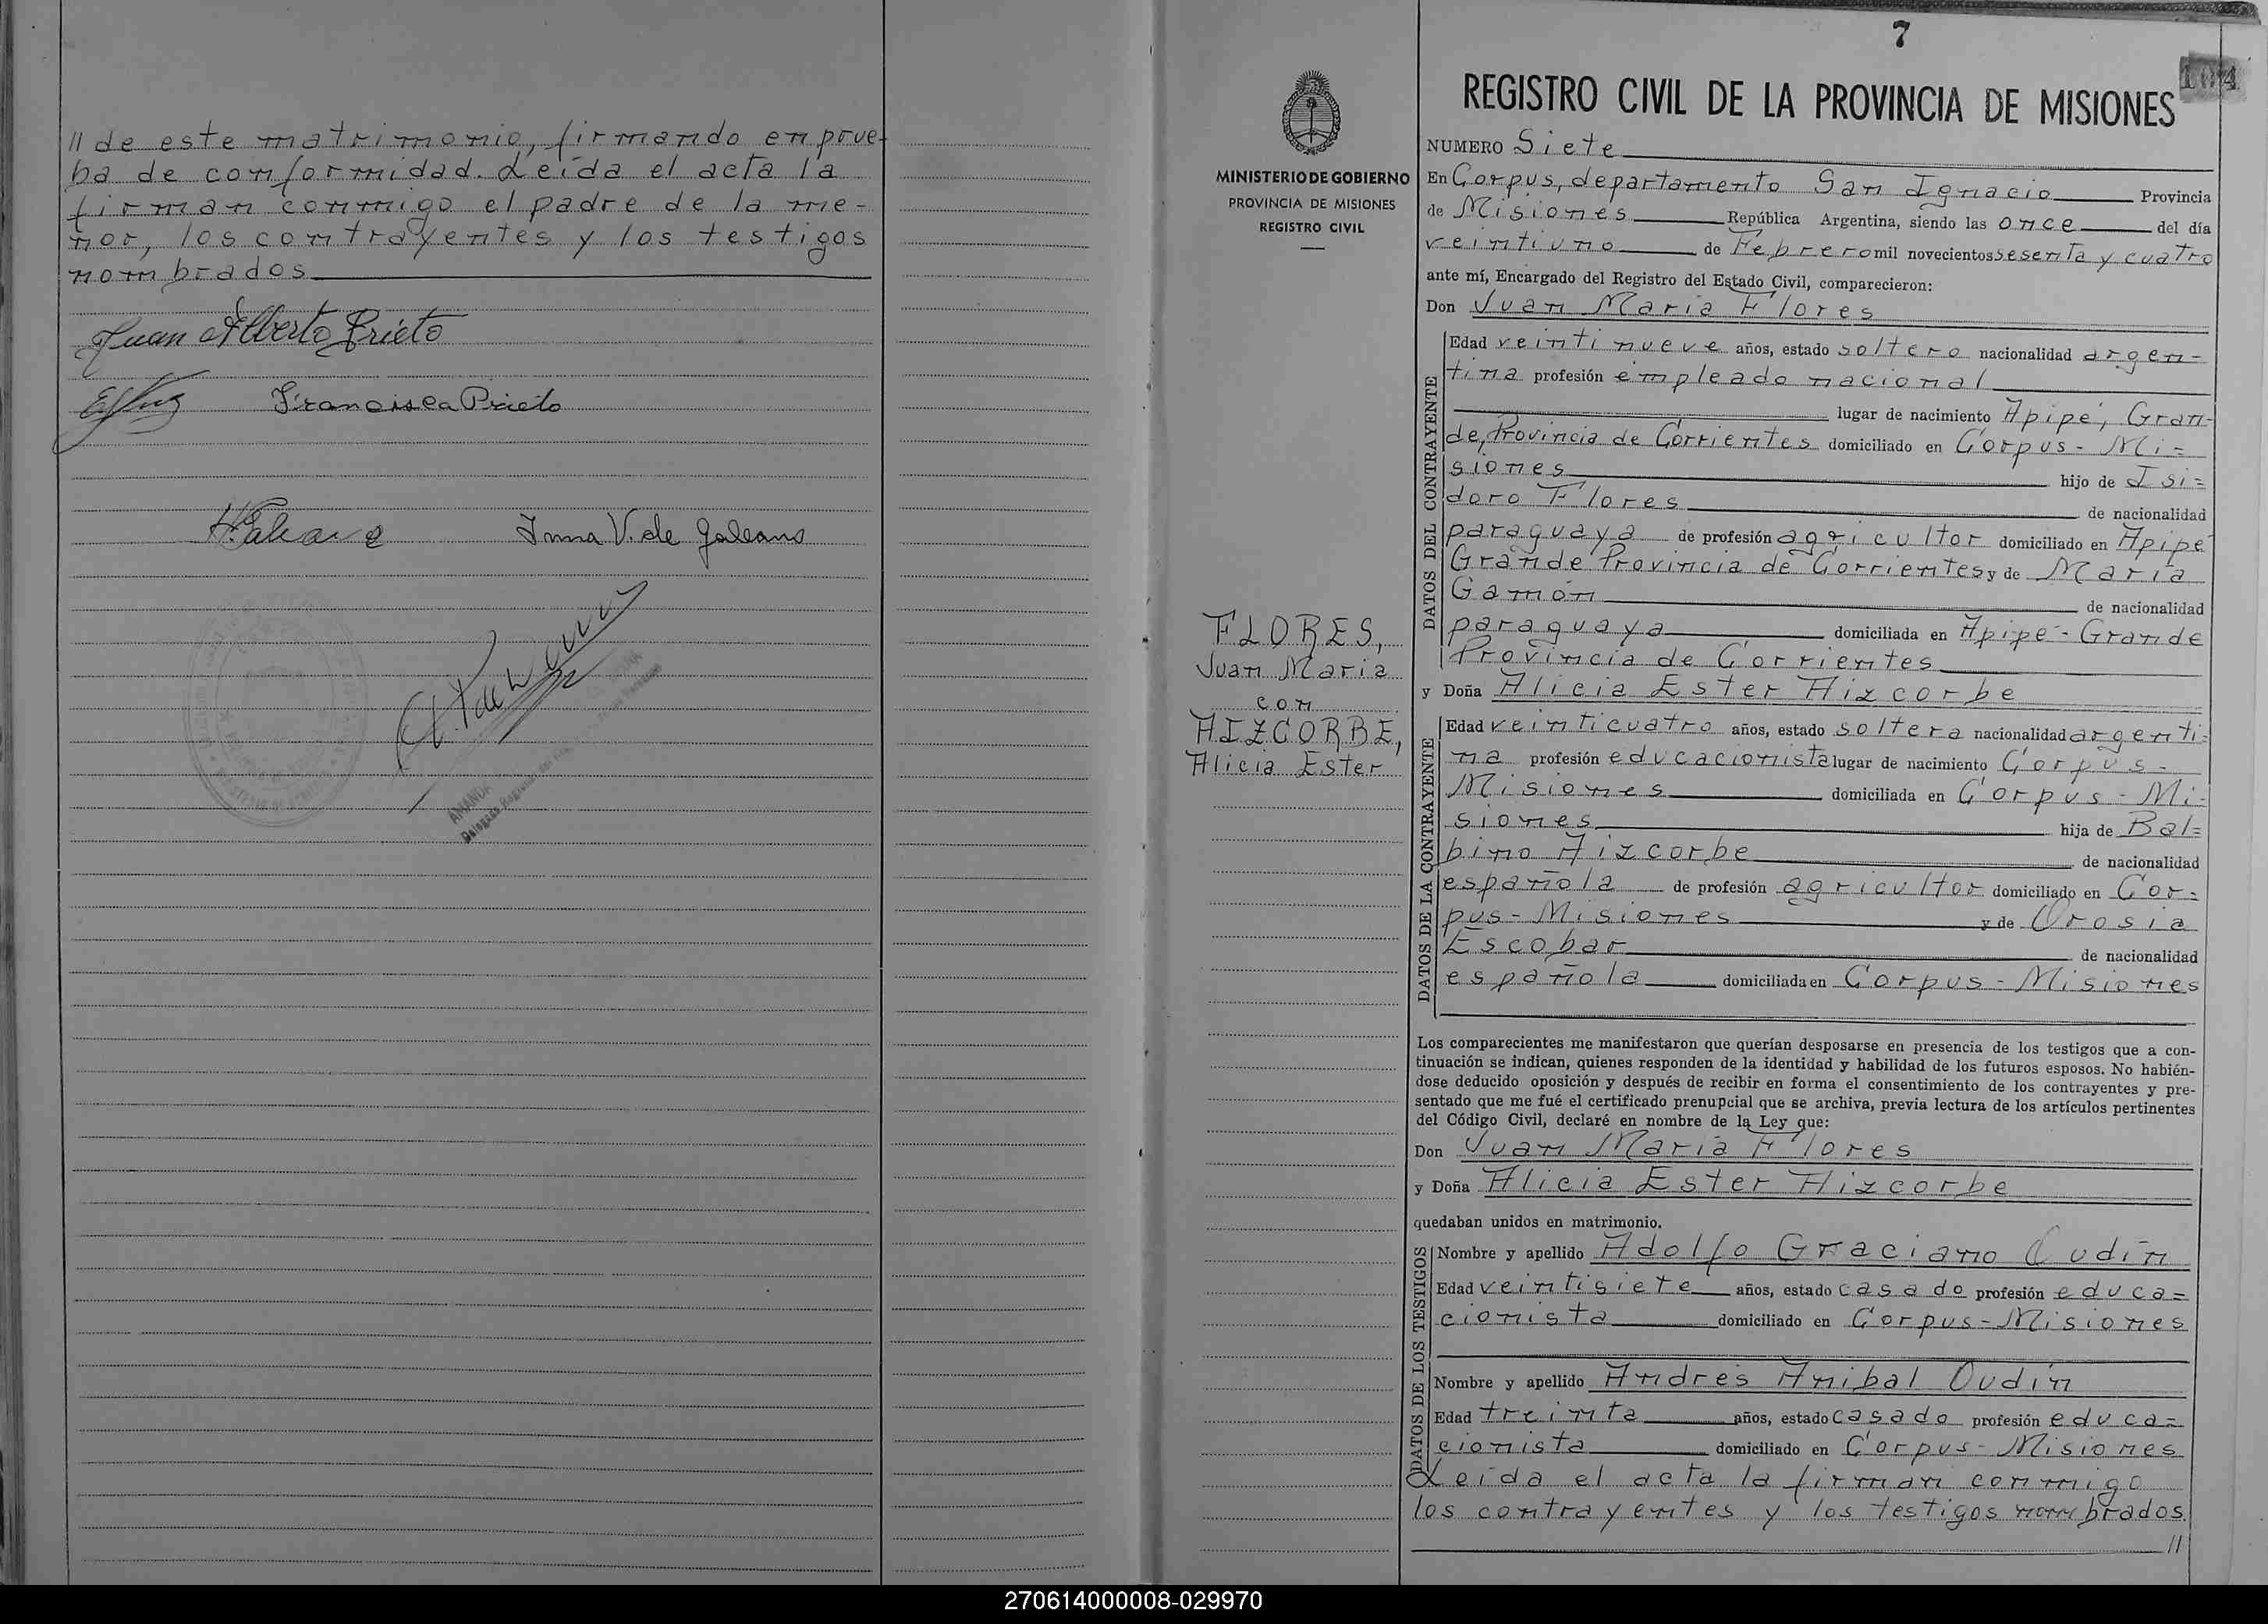 // de este matrimonio, firmando en prue-
ba de conformidad. Leída el acta la
firman conmigo el padre de la me-
nor, los contrayentes y los testigos
nombrados
Juan Alberto Prieto
Francisca Prieto
H. Galeano Irma V. de Galeano
7
104
REGISTRO CIVIL DE LA PROVINCIA DE MISIONES
MINISTERIO DE GOBIERNO
PROVINCIA DE MISIONES
REGISTRO CIVIL
FLORES,
Juan Maria
con
AIZCORBE,
Alicia Ester
NUMERO Siete
En Corpus, departamento San Ignacio Provincia
de Misiones República Argentina, siendo las once del día
veintiuno de Febrero mil novecientos sesenta y cuatro
ante mí, Encargado del Registro del Estado Civil, comparecieron:
Don Juan María Flores
DATOS DEL CONTRAYENTE
Edad veintinueve años, estado soltero nacionalidad argen-
tina profesión empleado nacional
lugar de nacimiento Apipé, Gran-
de, Provincia de Corrientes domiciliado en Corpus - Mi=
siones hijo de Isi=
doro Flores de nacionalidad
paraguaya de profesión agricultor domiciliado en Apipé
Grande Provincia de Corrientes y de María
Gamón de nacionalidad
paraguaya domiciliada en Apipé - Grande
Provincia de Corrientes
y Doña Alicia Ester Aizcorbe
DATOS DE LA CONTRAYENTE
Edad veinticuatro años, estado soltera nacionalidad argenti=
na profesión educacionista lugar de nacimiento Corpus -
Misiones domiciliada en Corpus - Mi-
siones hija de Bal=
bino Aizcorbe de nacionalidad
española de profesión agricultor domiciliado en Cor=
pus - Misiones y de Orosia
Escobar de nacionalidad
española domiciliada en Corpus - Misiones
Los comparecientes me manifestaron que querían desposarse en presencia de los testigos que a con-
tinuación se indican, quienes responden de la identidad y habilidad de los futuros esposos. No habién-
dose deducido oposición y después de recibir en forma el consentimiento de los contrayentes y pre-
sentado que me fué el certificado prenupcial que se archiva, previa lectura de los artículos pertinentes
del Código Civil, declaré en nombre de la Ley que:
Don Juan María Flores
y Doña Alicia Ester Aizcorbe
quedaban unidos en matrimonio.
DATOS DE LOS TESTIGOS
Nombre y apellido Adolfo Graciano Oudín
Edad veintisiete años, estado casado profesión educa=
cionista domiciliado en Corpus - Misiones
Nombre y apellido Andrés Anibal Oudín
Edad treinta años, estado casado profesión educa=
cionista domiciliado en Corpus - Misiones
Leída el acta la firman conmigo
los contrayentes y los testigos nombrados.
//
270614000008-029970